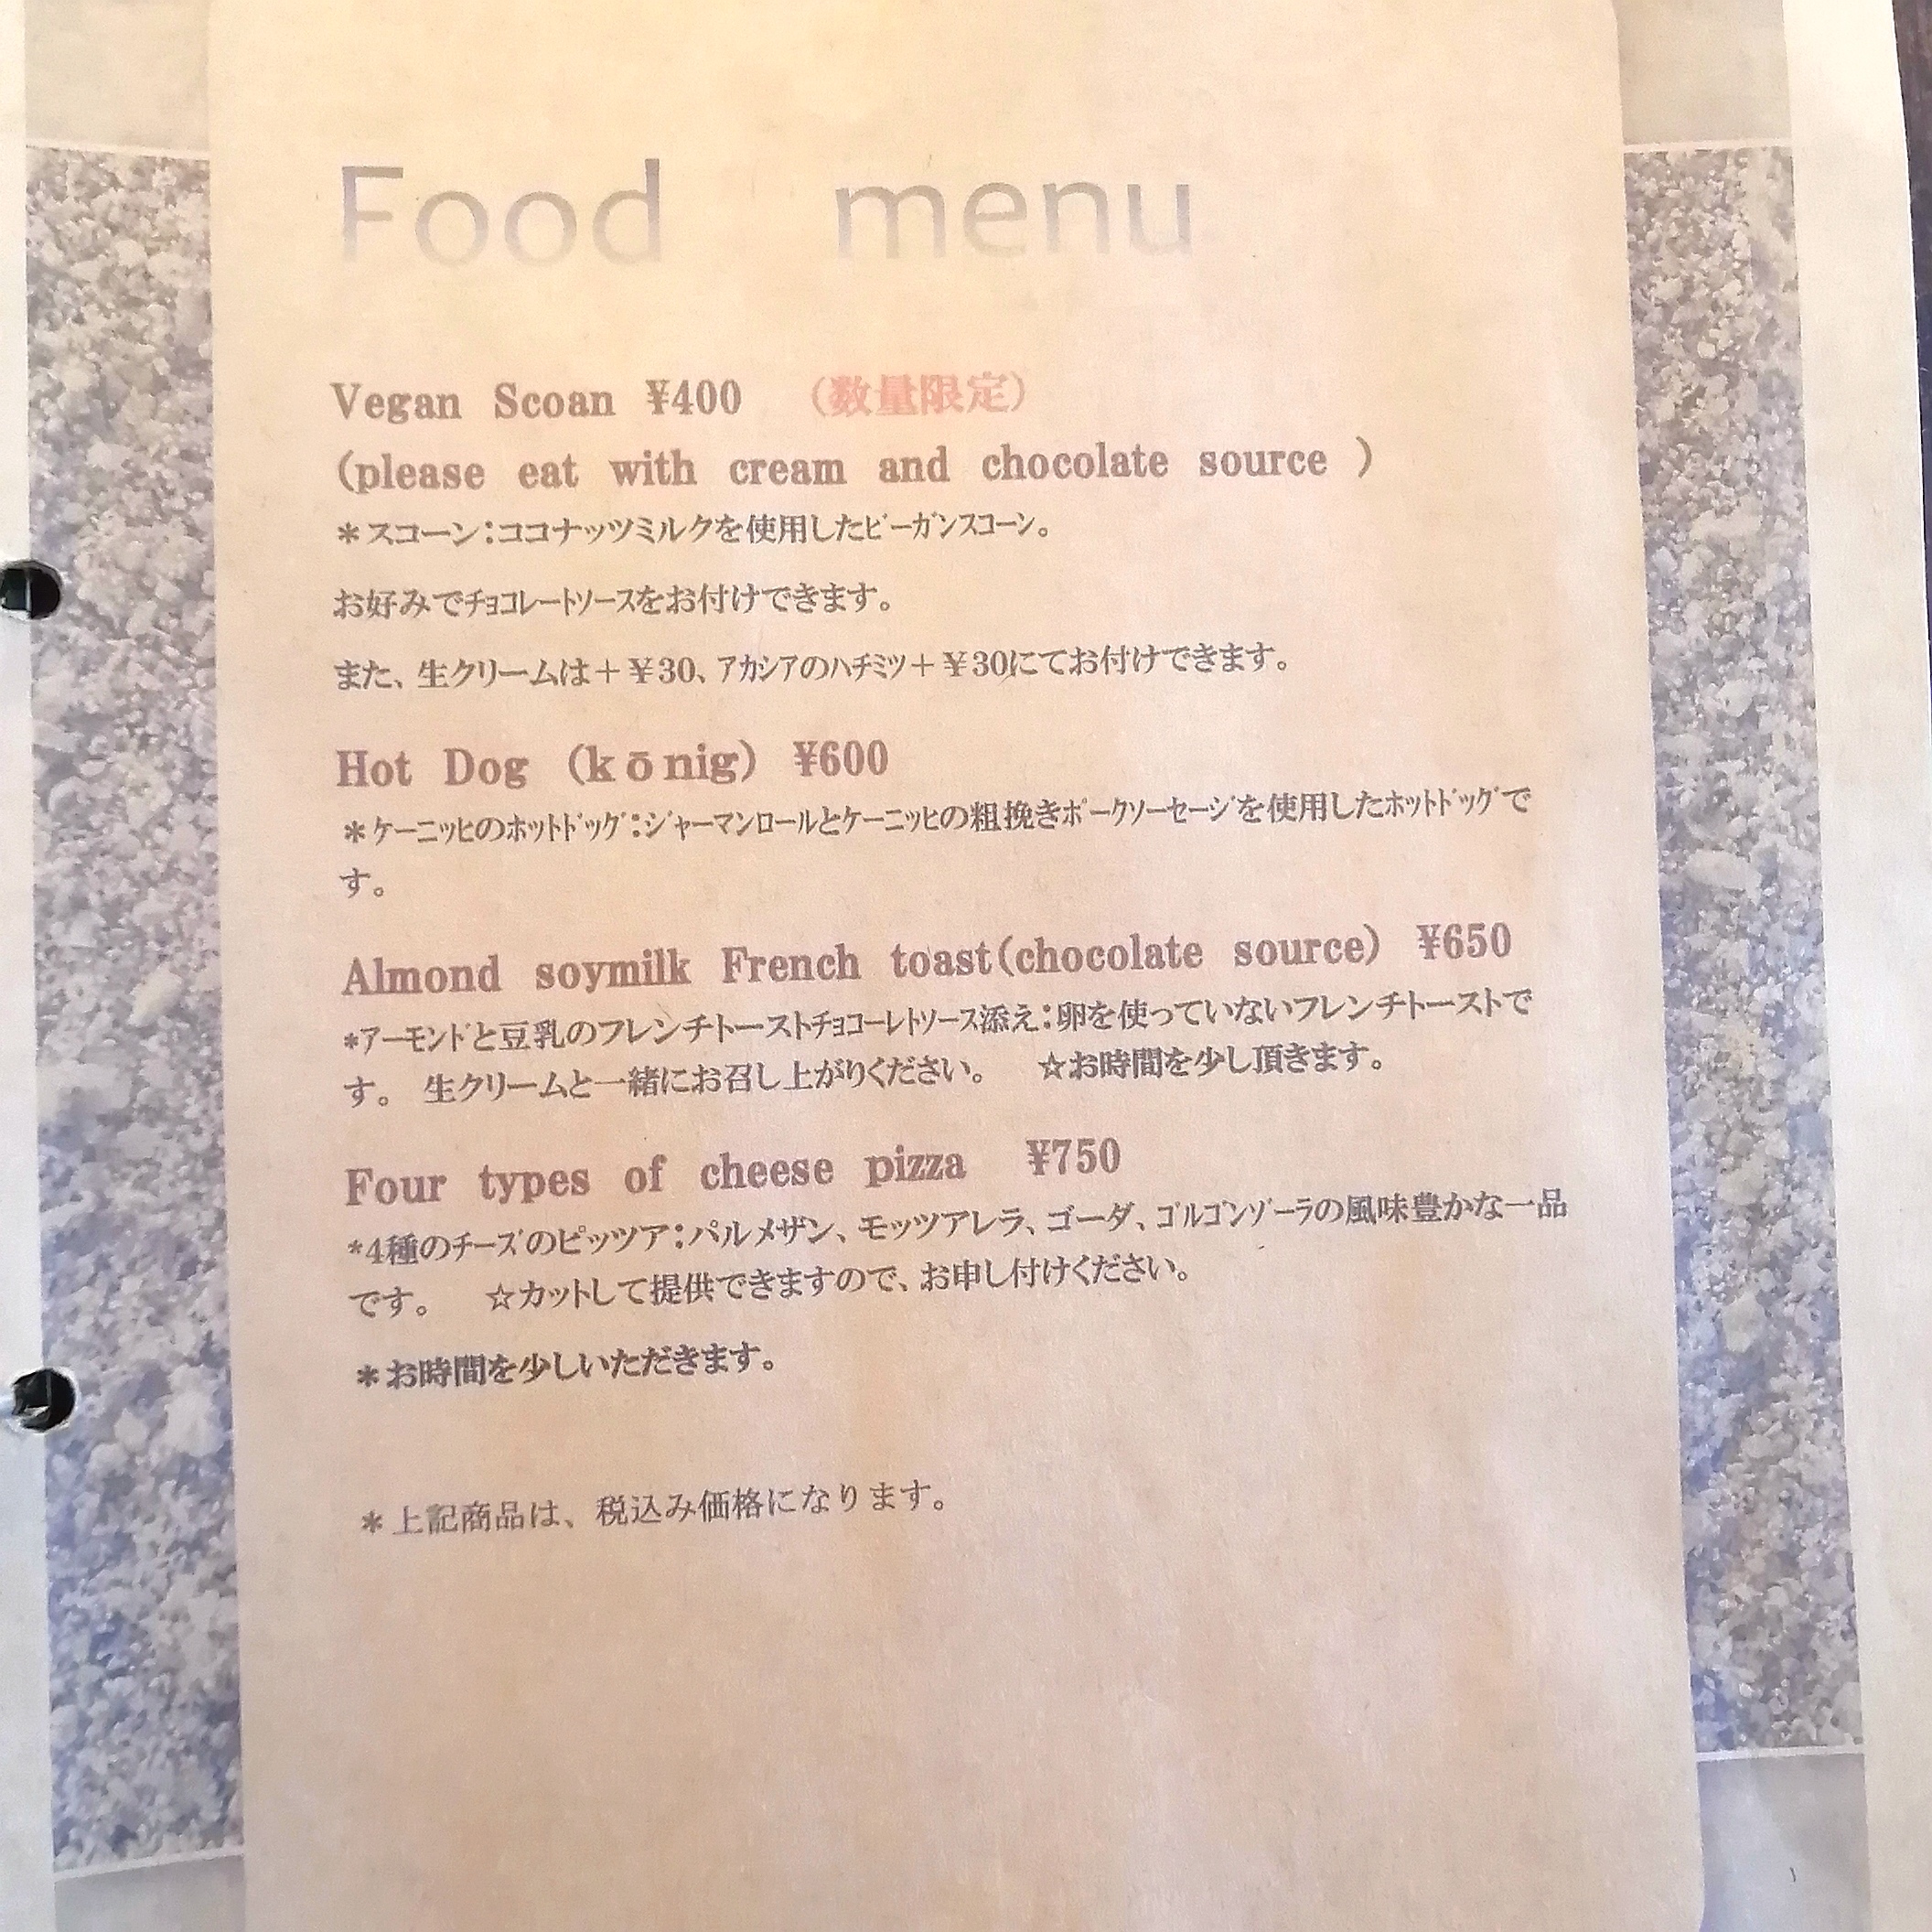 Food menu
Vegan Scoan ¥400 （数量限定）
(please eat with cream and chocolate source )
＊スコーン：ココナッツミルクを使用したﾋﾞｰｶﾞﾝｽｺｰﾝ。
お好みでﾁｮｺﾚｰﾄｿｰｽをお付けできます。
また、生クリームは＋￥30、ｱｶｼｱのﾊﾁﾐﾂ＋￥30にてお付けできます。
Hot Dog (kōnig) ¥600
＊ｹｰﾆｯﾋのﾎｯﾄﾄﾞｯｸﾞ：ｼﾞｬｰﾏﾝﾛｰﾙとｹｰﾆｯﾋの粗挽きﾎﾟｰｸｿｰｾｰｼﾞを使用したﾎｯﾄﾄﾞｯｸﾞで
す。
Almond soymilk French toast(chocolate source) ¥650
*ｱｰﾓﾝﾄﾞと豆乳のフレンチトーストﾁｮｺｰﾚﾄｿｰｽ添え：卵を使っていないフレンチトーストで
す。 生クリームと一緒にお召し上がりください。 ☆お時間を少し頂きます。
Four types of cheese pizza ¥750
*4種のﾁｰｽﾞのピッツア：パルメザン、モッツアレラ、ゴーダ、ｺﾞﾙｺﾞﾝｿﾞｰﾗの風味豊かな一品
です。 ☆カットして提供できますので、お申し付けください。
＊お時間を少しいただきます。
＊上記商品は、税込み価格になります。